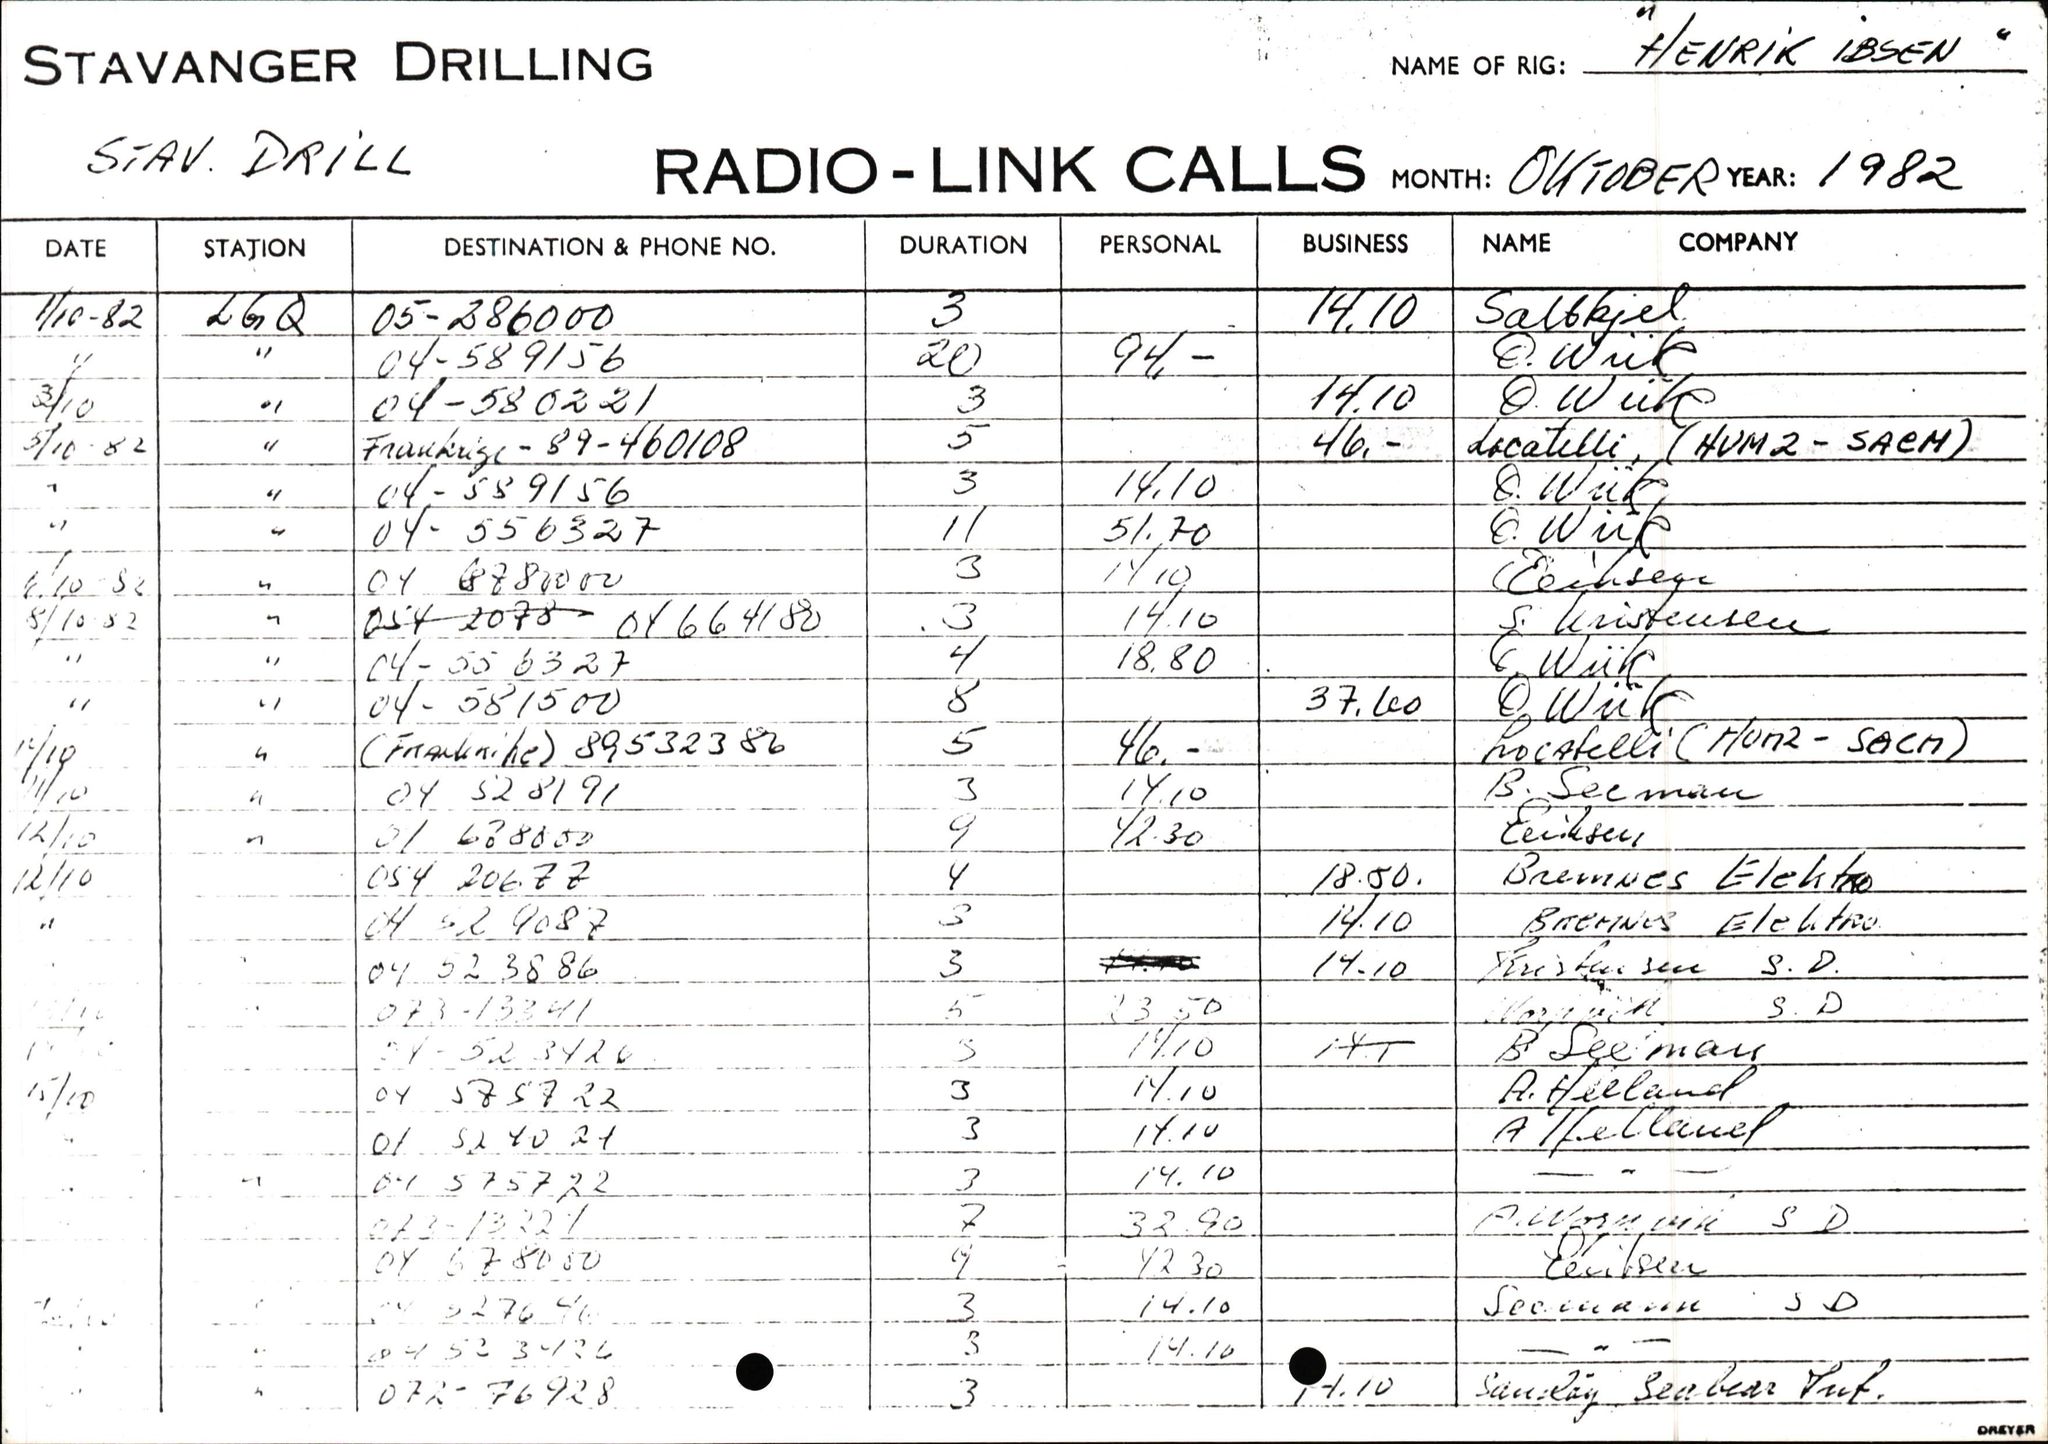 "HENRIK IBSEN"
STAVANGER DRILLING NAME OF RIG:
STAV. DRILL RADIO-LINK CALLS MONTH: OKTOBER YEAR: 1982
DATE STATION DESTINATION & PHONE NO. DURATION PERSONAL BUSINESS NAME COMPANY
1/10-82 LGQ 05-286000 3 14.10 Saltkjel
" " 04-589156 20 94,- O. Wiik
3/10 " 04-580221 3 14.10 O. Wiik
5/10-82 " Frankrige-89-460108 5 46.- Locatelli, (HUM2-SACM)
" " 04-589156 3 14.10 O. Wiik
" " 04-556327 11 51.70 O. Wiik
6/10-82 " 04 6780000 3 14.10 Eeriksen
8/10-82 " 054 2078 04 664180 3 14.10 S. Kristensen
" " 04-556327 4 18.80 O. Wiik
" " 04-581500 8 37.60 O. Wiik
11/10 " (Frankrike) 89532386 5 46.- Locatelli (HUM2-SACM)
11/10 " 04 528191 3 14.10 B. Seeman
12/10 " 01 678000 9 42.30 Eeriksen
12/10 054 20677 4 18.80. Bremnes Elektro
" 04 529087 3 14.10 Bremnes Elektro
04 523886 3 14.10 Kristensen S.D.
" 073-13341 5 23.50 S.D
04-523426 3 14.10 14.1 B Seeman
15/10 04 575722 3 14.10 A. Helland
" 01 524024 3 14.10 A Helland
" " 04 575722 3 14.10 — " —
" 073-13221 7 32.90 S D
04 678000 9 42 30 Eeriksen
" 04 527640 3 14.10 Seemann S D
" 04 523426 3 14.10 — " —
" 072-76928 3 14.10 Sandøy Seabear Int.
DREYER